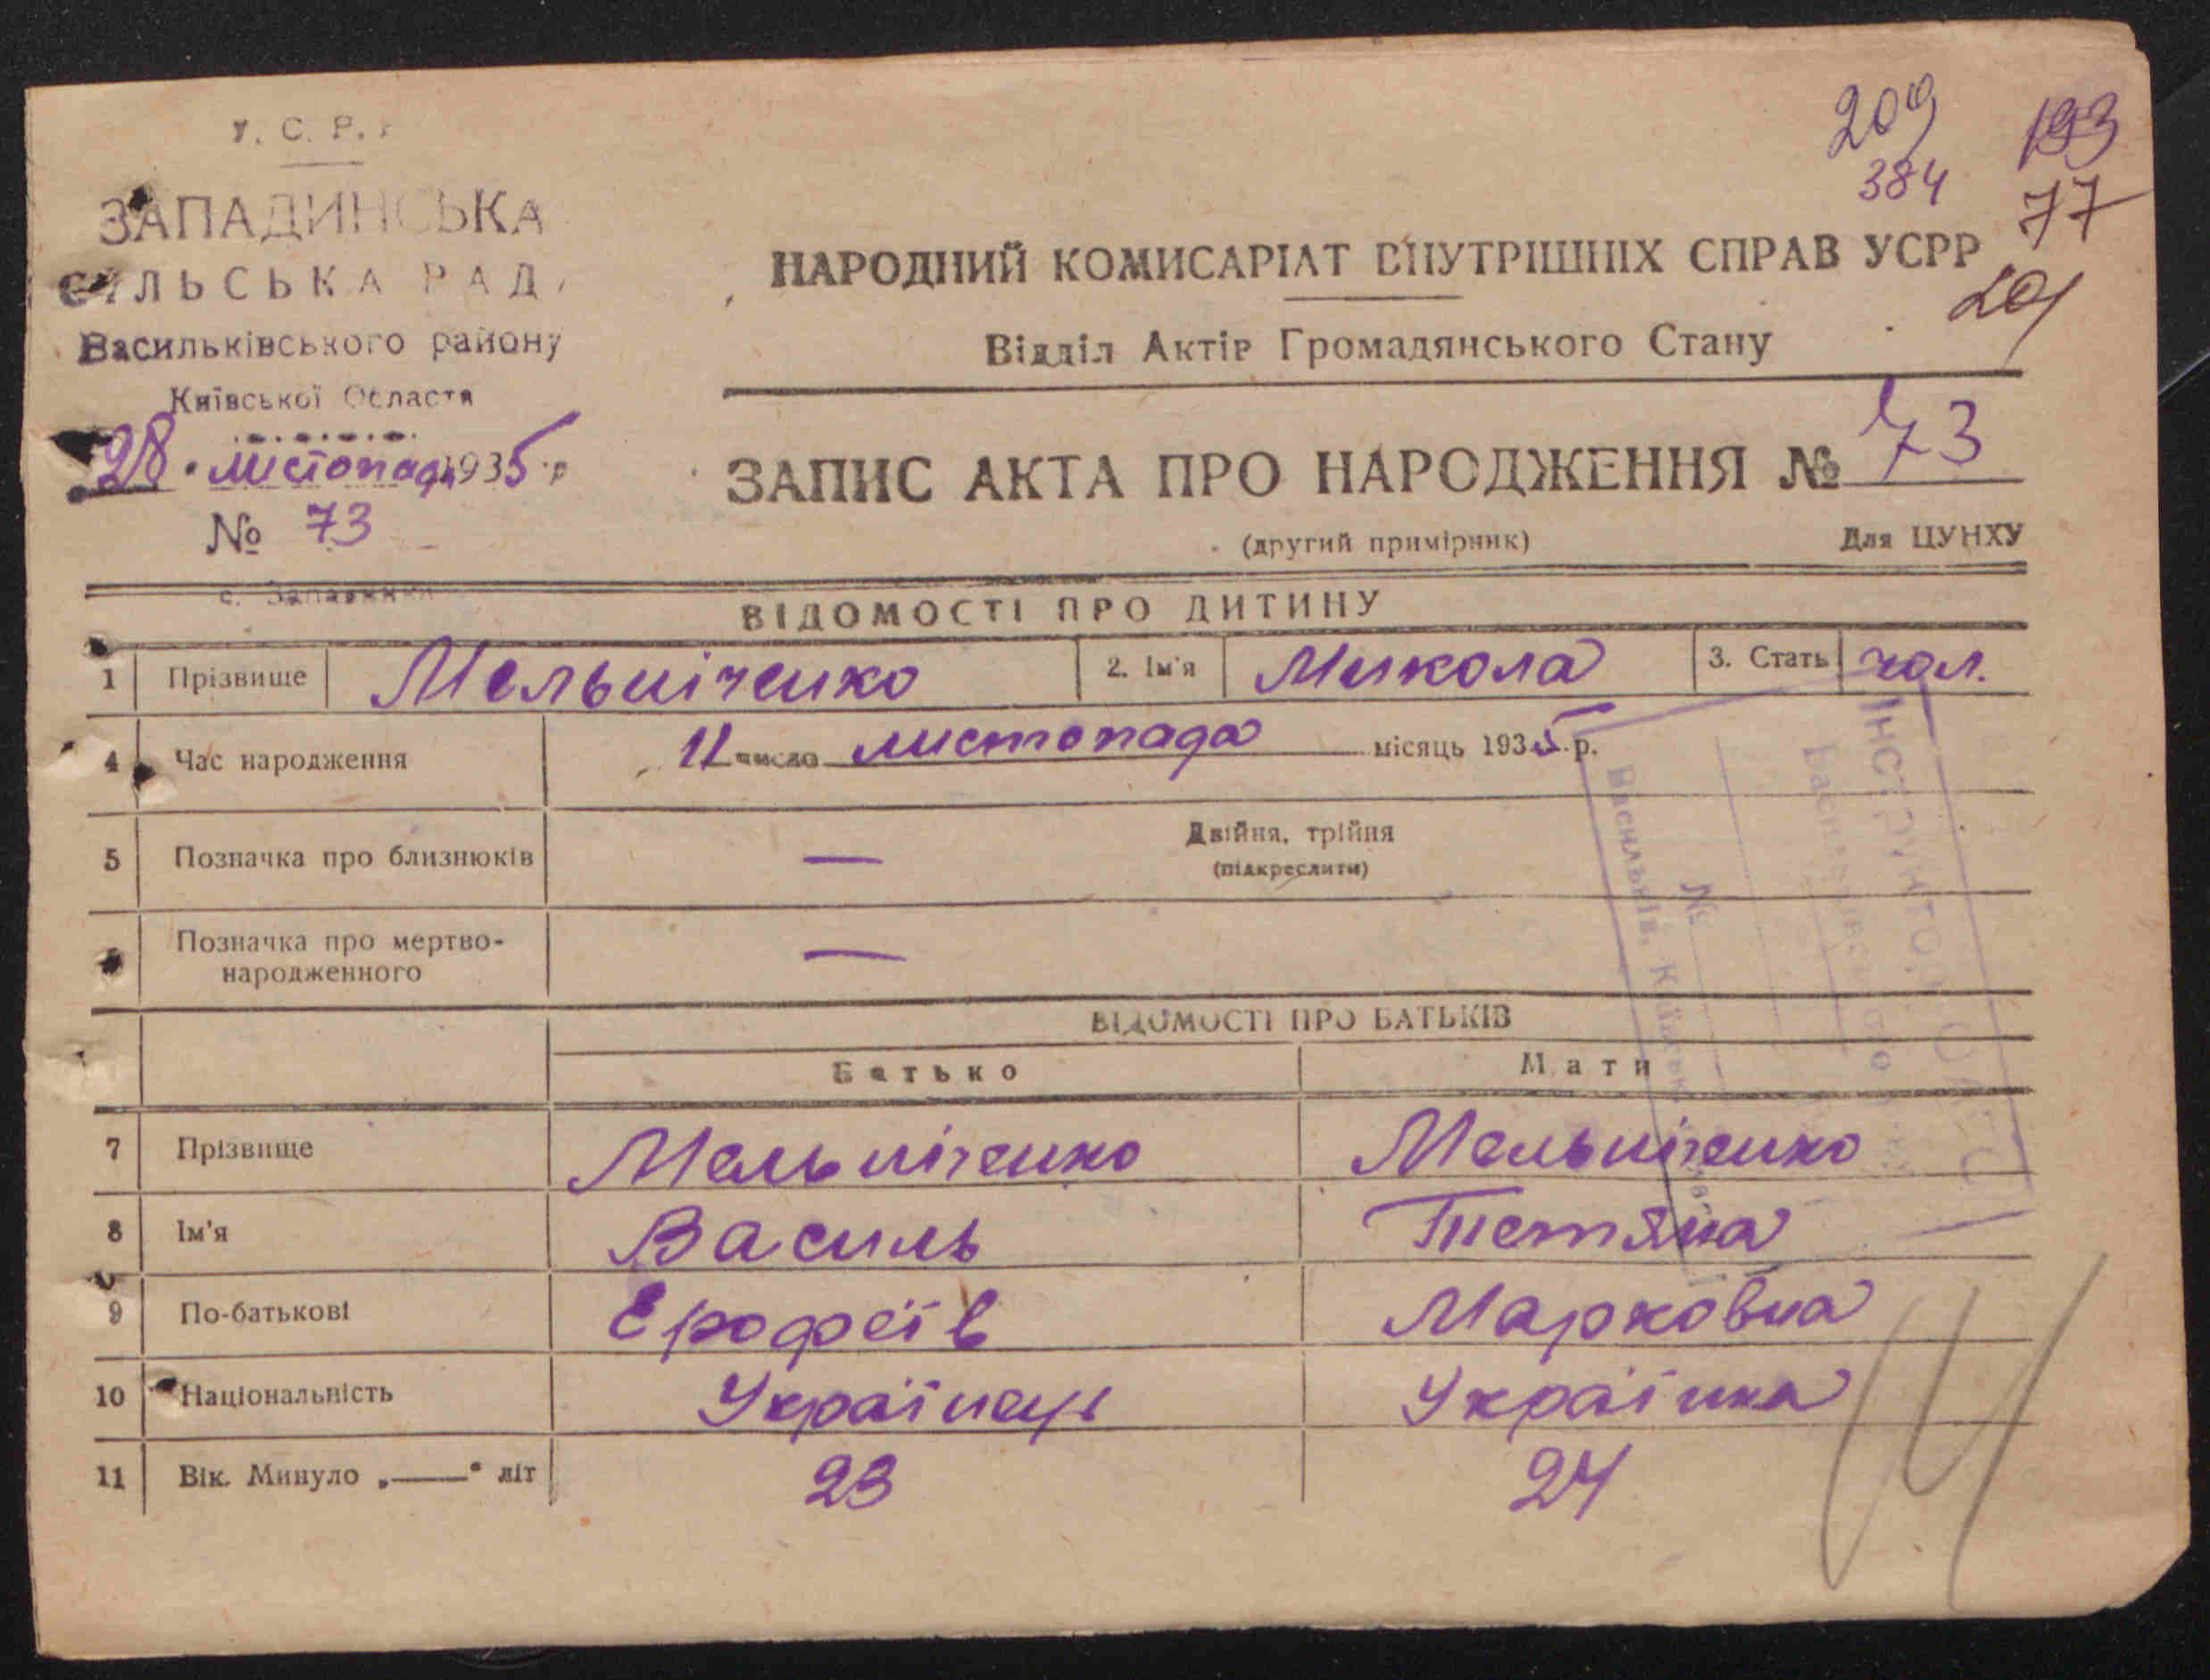 У. С. Р. Р
209
193
384
77
201
ЗАПАДИНСЬКА
СІЛЬСЬКА РАДА
Васильківського району
Київської Области
28 листопада 1935 р
№ 73
с. Западинка
НАРОДНИЙ КОМИСАРІАТ ВНУТРІШНІХ СПРАВ УСРР
Відділ Актів Громадянського Стану
ЗАПИС АКТА ПРО НАРОДЖЕННЯ № 73
(другий примірник) Для ЦУНХУ
ВІДОМОСТІ ПРО ДИТИНУ
1 Прізвище Мельніченко 2. Ім'я Микола 3. Стать чол.
4 Час народження 11 число листопада місяць 1935 р.
5 Позначка про близнюків — Двійня, трійня
(підкреслити)
6 Позначка про мертво-
народженного —
ВІДОМОСТІ ПРО БАТЬКІВ
Батько Мати
7 Прізвище Мельніченко Мельніченко
8 Ім'я Василь Тетяна
9 По-батькові Ерофеїв Марковна
10 Національність Українець Українка
11 Вік. Минуло „——" літ 23 24
ІНСТРУКТОР
№
Васильків, Київськ